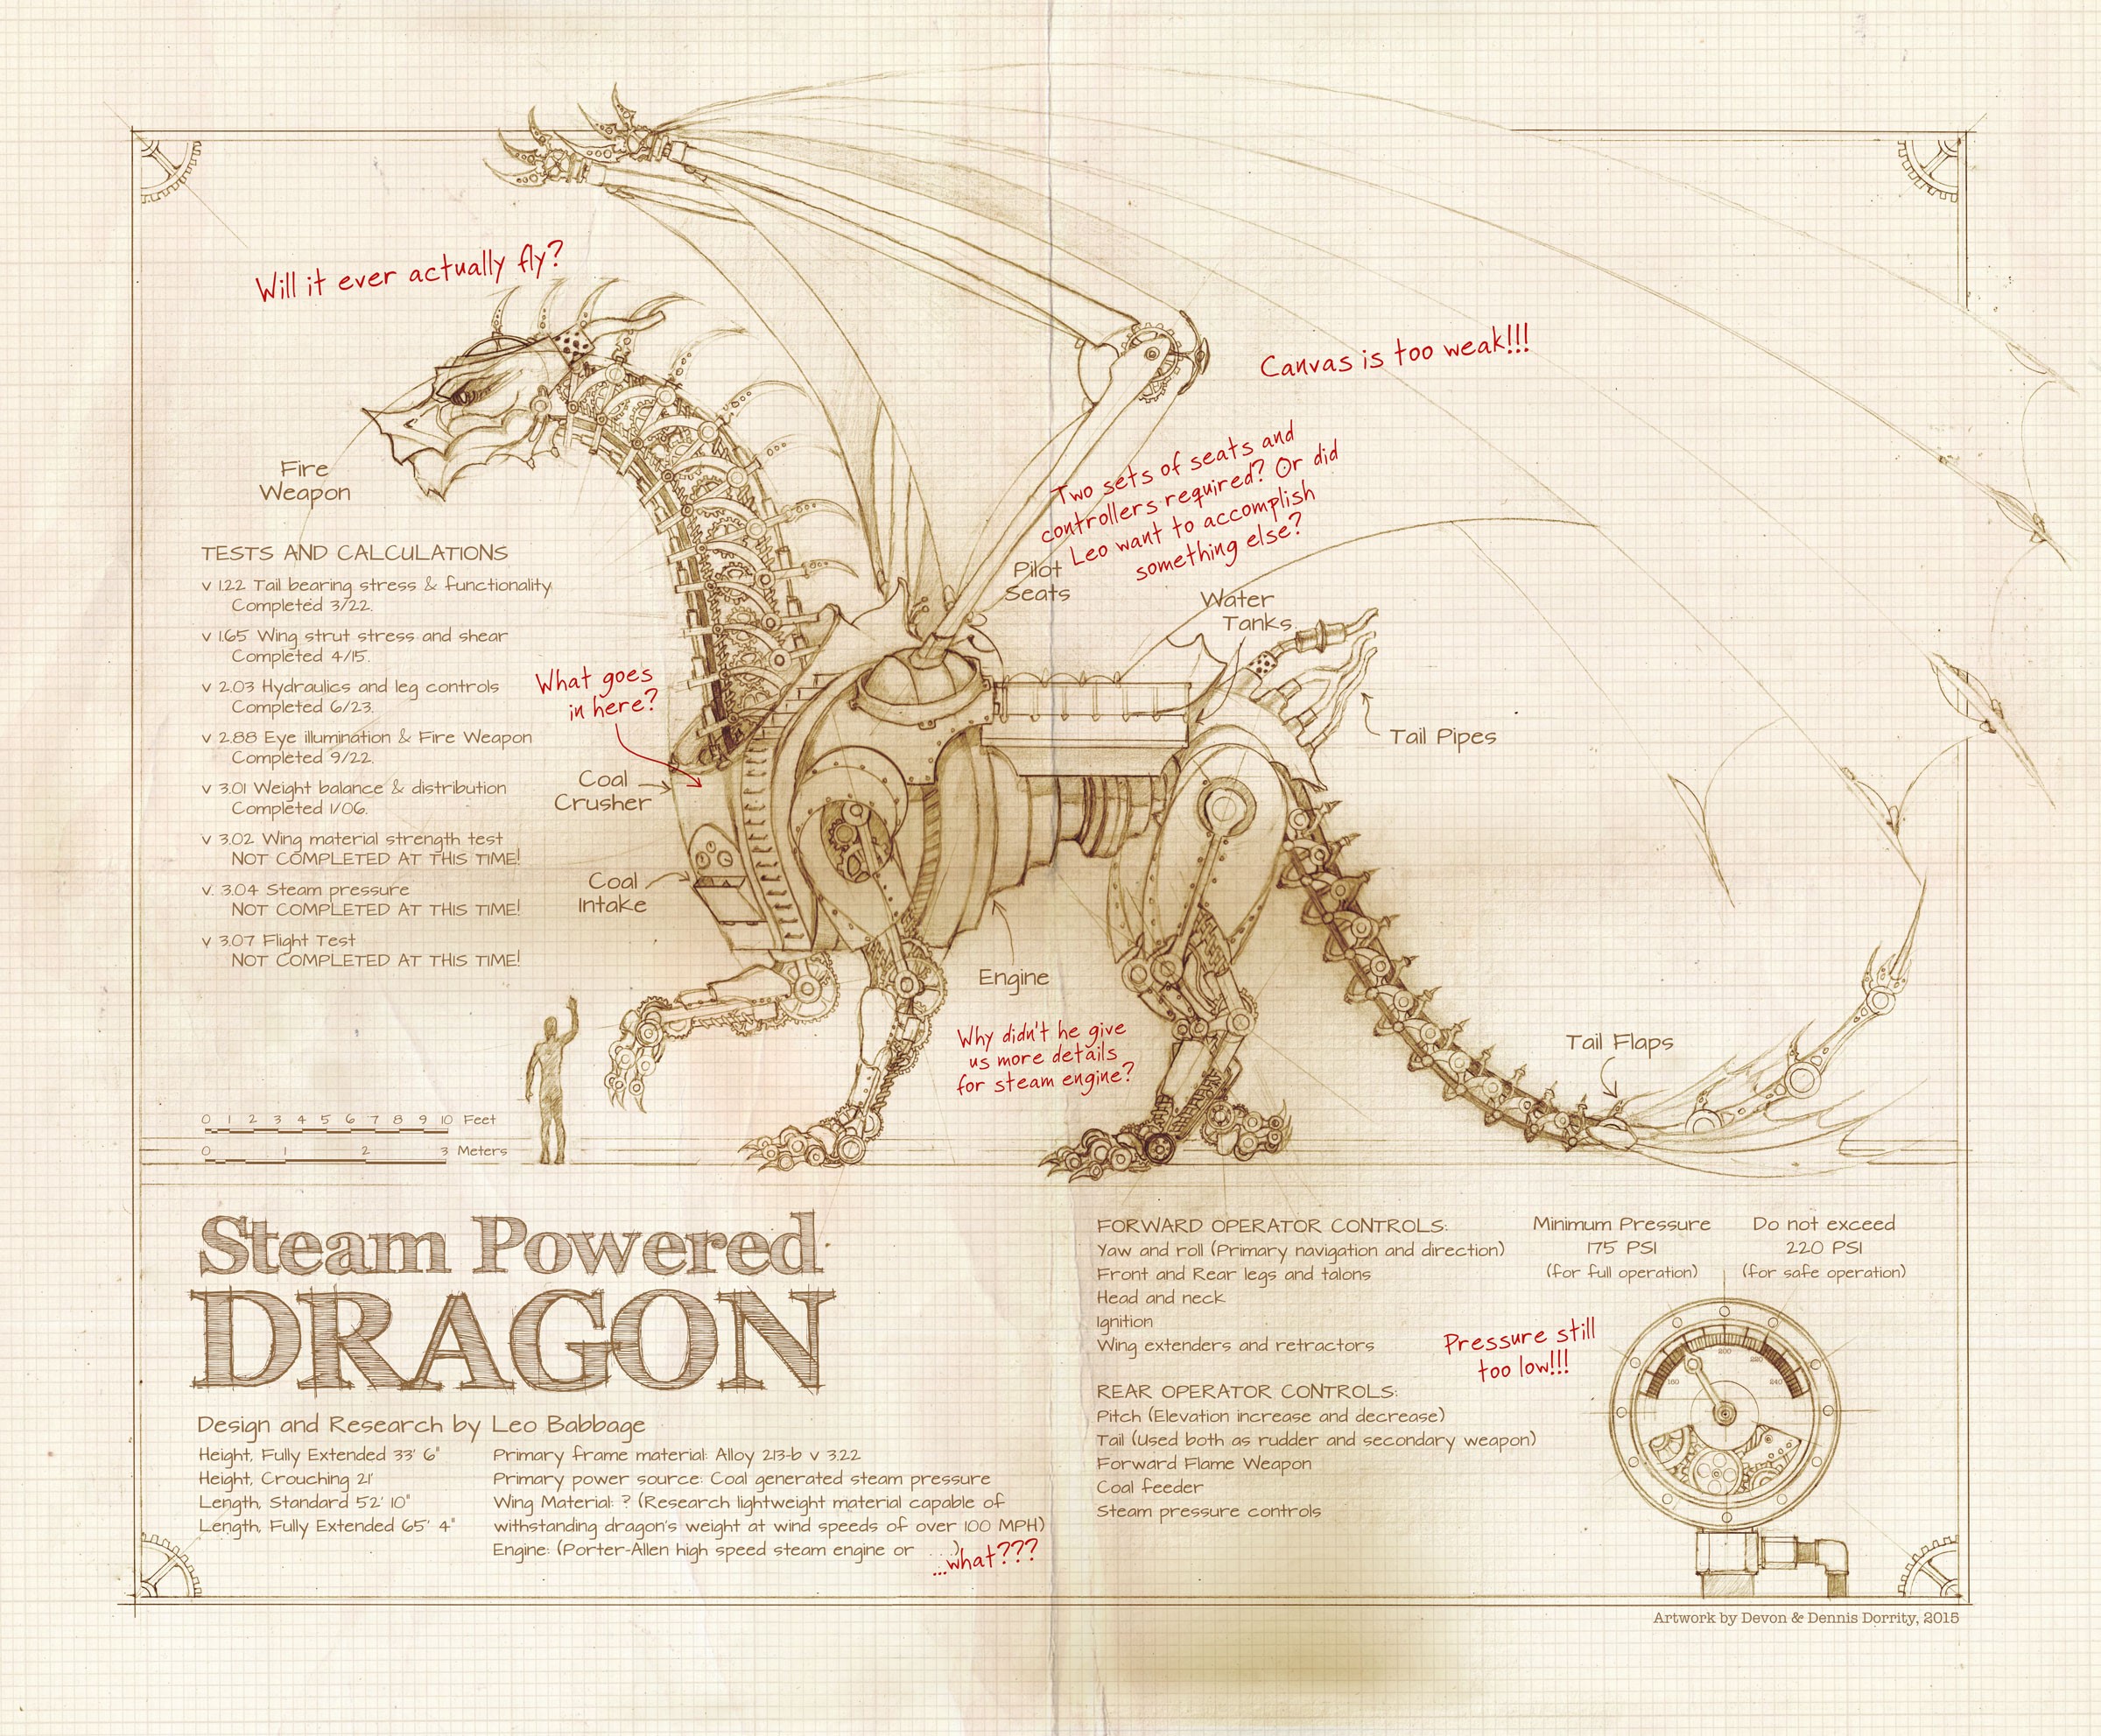 Will it ever actually fly?
Canvas is too weak!!!
Two sets of seats and
controllers required? Or did
Leo want to accomplish
something else?
Fire
Weapon
Pilot
Seats
Water
Tanks
Tail Pipes
TESTS AND CALCULATIONS
v 1.22 Tail bearing stress & functionality
Completed 3/22.
v 1.65 Wing strut stress and shear
Completed 4/15.
v 2.03 Hydraulics and leg controls
Completed 6/23.
v 2.88 Eye illumination & Fire Weapon
Completed 9/22.
v 3.01 Weight balance & distribution
Completed 1/06.
v 3.02 Wing material strength test
NOT COMPLETED AT THIS TIME!
v. 3.04 Steam pressure
NOT COMPLETED AT THIS TIME!
v 3.07 Flight Test
NOT COMPLETED AT THIS TIME!
What goes
in here?
Coal
Crusher
Coal
Intake
Engine
Why didn't he give
us more details
for steam engine?
Tail Flaps
0 1 2 3 4 5 6 7 8 9 10 Feet
0 1 2 3 Meters
Steam Powered
DRAGON
Design and Research by Leo Babbage
Height, Fully Extended 33' 6"
Height, Crouching 21'
Length, Standard 52' 10"
Length, Fully Extended 65' 4"
Primary frame material: Alloy 213-b v 3.22
Primary power source: Coal generated steam pressure
Wing Material: ? (Research lightweight material capable of
withstanding dragon's weight at wind speeds of over 100 MPH)
Engine: (Porter-Allen high speed steam engine or ...)
...what???
FORWARD OPERATOR CONTROLS:
Yaw and roll (Primary navigation and direction)
Front and Rear legs and talons
Head and neck
Ignition
Wing extenders and retractors
REAR OPERATOR CONTROLS:
Pitch (Elevation increase and decrease)
Tail (Used both as rudder and secondary weapon)
Forward Flame Weapon
Coal feeder
Steam pressure controls
Minimum Pressure
175 PSI
(for full operation)
Do not exceed
220 PSI
(for safe operation)
Pressure still
too low!!!
160 200 220 240
Artwork by Devon & Dennis Dorrity, 2015